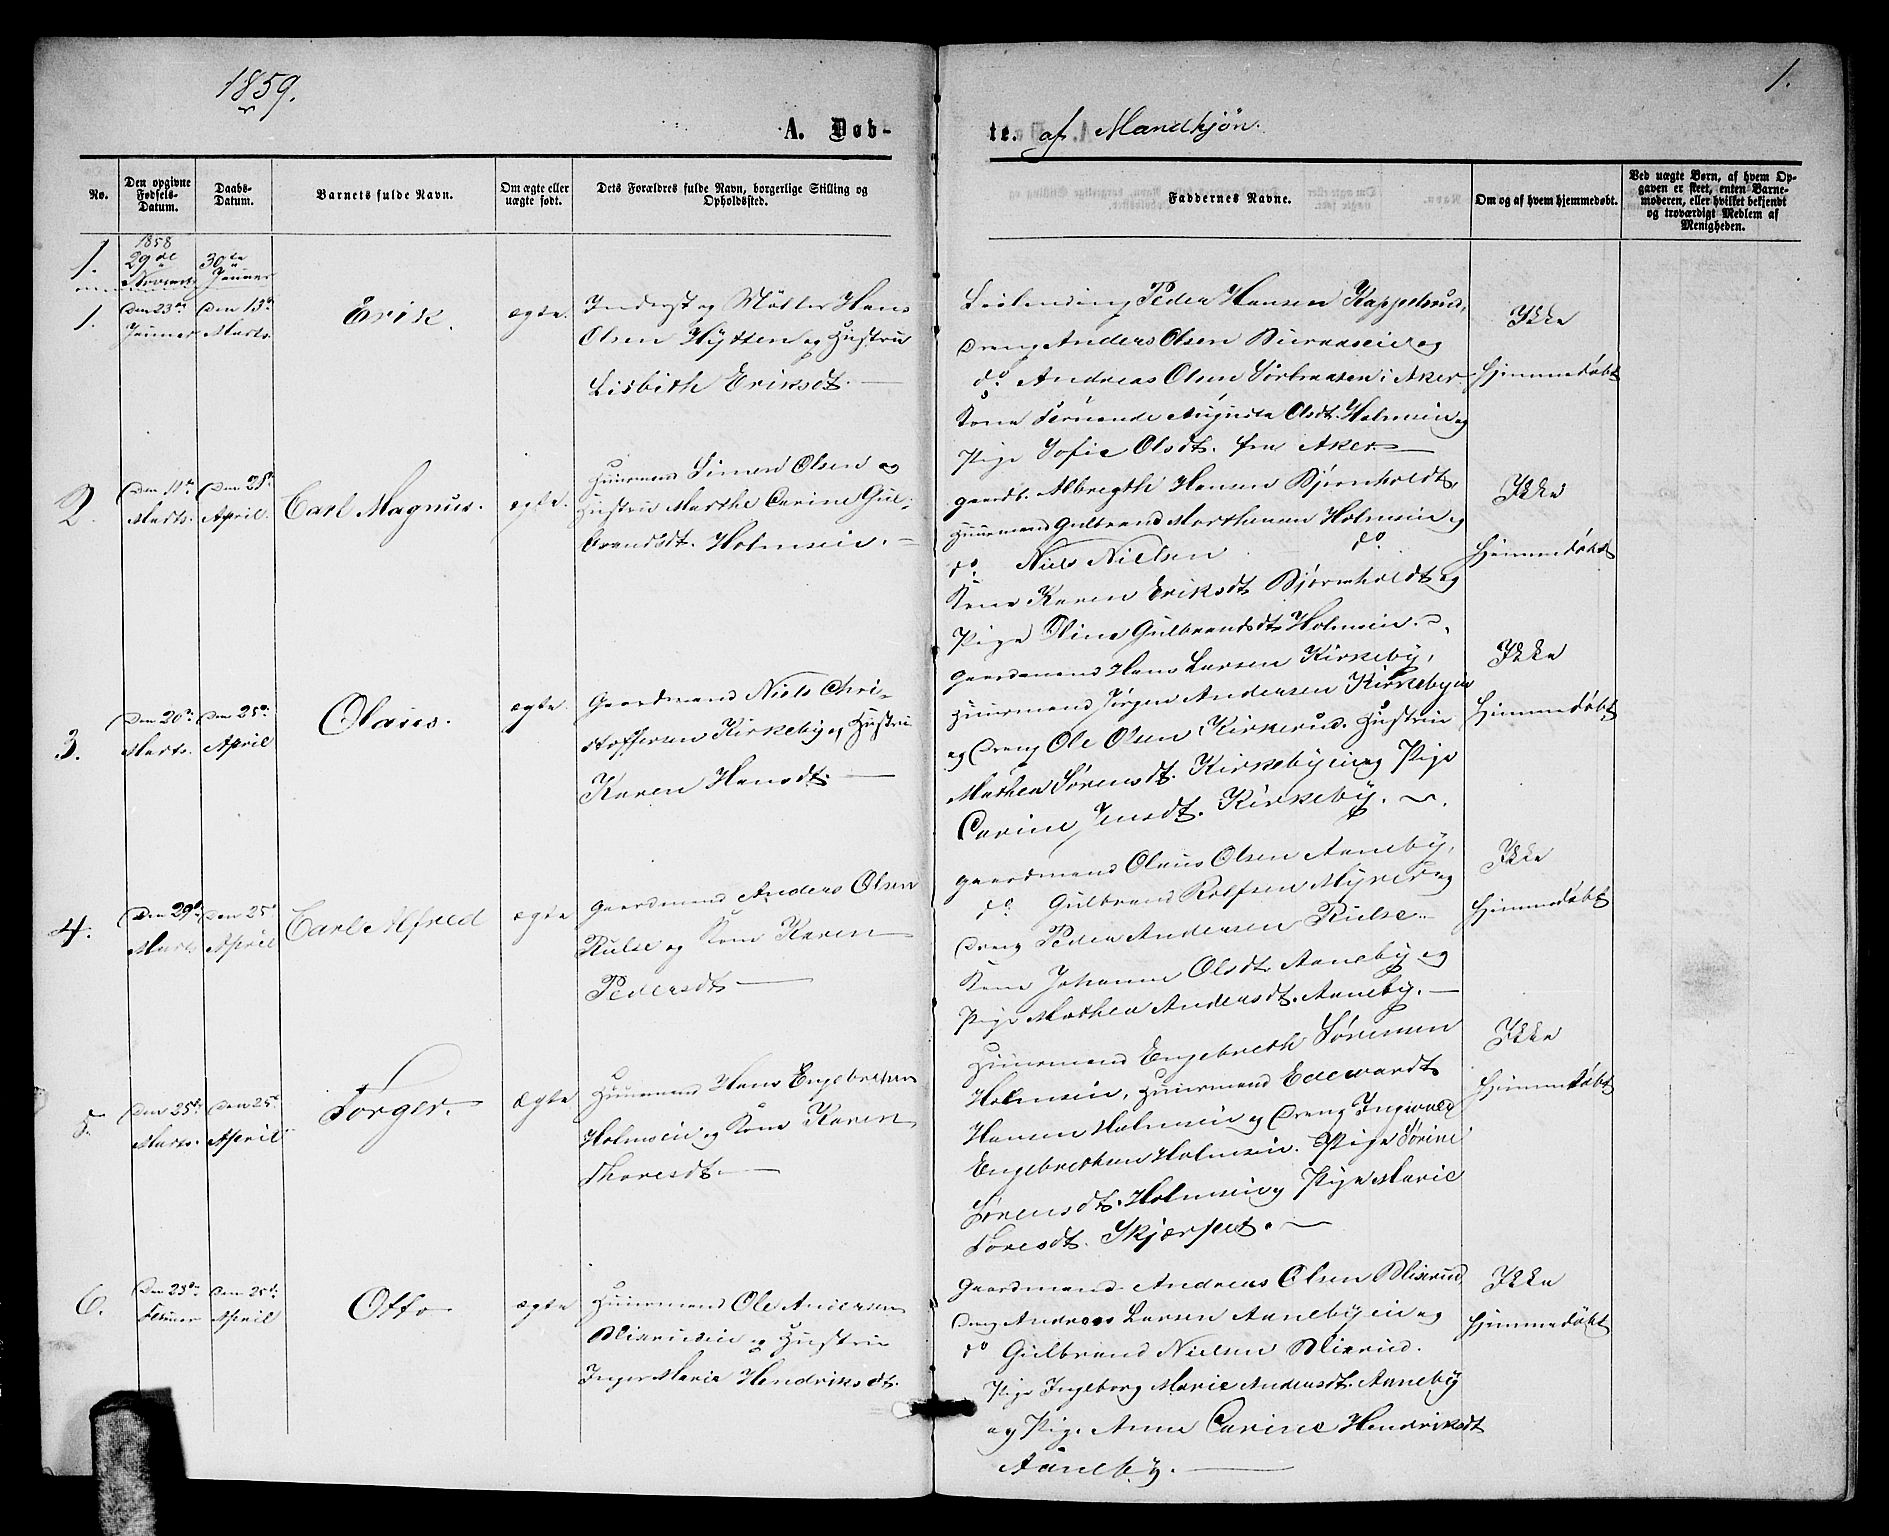 1859.
1.
A. Døb-
te. af Mandkjøn.
No.
Den opgivne Fødsels-Datum.
Daabs-Datum.
Barnets fulde Navn.
Om ægte eller uægte født.
Dets Forældres fulde Navn, borgerlige Stilling og Opholdssted.
Faddernes Navne.
Om og af hvem hjemmedøbt.
Ved uægte Børn, af hvem Opgaven er skeet, enten Barnemoderen, eller hvilket bekjendt og troværdigt Medlem af Menigheden.
1.
1858
29de
30te
Januar
1.
Den 23de
Januar
Den 13de
Marts.
Erik.
ægte.
Inderst og Møller Hans
Olsen Hytten og Hustrue
Lisbeth Eriksdt.
Leilending Peder Hansen Kappelsrud,
Dreng Anders Olsen
do Andreas Olsen i Aker
Kone Fernande Augusta Olsdt. Holmeie og
Pige Sofie Olsdt. fra Aker.
Ikke
Hjemmedøbt
2.
Den 11te
Marts.
Den 25de
April.
Carl Magnus.
ægte.
Huusmand Simen Olsen og
Hustrue Marthe Carine Gul-
brandsdt. Holmeie.
Gaardb. Albregth Hansen Bjørnholdt,
Huusmand Gulbrand Holmeie og
do. Niels Nielsen do.
Kone Karen Eriksdt Bjørnholdt og
Pige Stine Gulbrandsdt. Holmeie.
Ikke
Hjemmedøbt
3.
Den 20de
Marts.
Den 25de
April
Olaus.
ægte.
Gaardmand Niels Chri-
stoffersen Kirkeby og Hustrue
Karen Hansdt.
Gaardmand Hans Larsen Kirkeby,
Huusmand Jørgen Andersen Kirkebyeie
og Dreng Ole Olsen Kirkerud. Hustrue
Mathea Sørensdt. Kirkebyeie og Pige
Carine Jensdt. Kirkeby.
Ikke
Hjemmedøbt
4.
Den 29de
Marts
Den 25de
April
Carl Alfred
ægte
Gaardmand Anders Olsen
Rulse og Kone Karen
Pedersdt
Gaardmand Olaus Olsen Aaneby,
do. Gulbrand Rolfsen Myrer og
Dreng Peder Andersen Rulse.
Kone Johanne Olsdt. Aaneby og
Pige Mathea Andersdt. Aaneby.
Ikke
Hjemmedøbt
5.
Den 25de
Marts.
Den 25de
April
Torger.
ægte
Huusmand Hans Engebrethsen
Holmeie og Kone Karen
Thoresdt.
Huusmand Engebreth Sørensen
Holmeie, Huusmand Edewardt
Hansen Holmeie og Dreng Ingevald
Engebrethsen Holmeie. Pige Sørine
Sørensdt. Holmeie og Pige Marie
Toresdt. Skjærpet.
Ikke
Hjemmedøbt
6.
Den 23de
Den 25de
April
Otto
ægte
Huusmand Ole Andersen
Blixrudeie og Hustrue
Inger Marie Hendriksdt.
Gaardmand Andreas Olsen Blixrud,
Dreng Andreas Larsen Aanebyeie og
do Gulbrand Nielsen Blixrud.
Pige Ingeborg Marie Andersdt. Aaneby
og Pige Anne Carine Hendriksdt
Aaneby.
Ikke
Hjemmedøbt